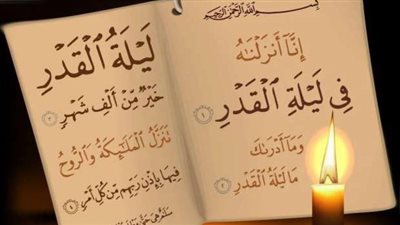 بِسْمِ ٱللَّهِ ٱلرَّحْمَٰنِ ٱلرَّحِيمِ
إِنَّآ أَنزَلْنَٰهُ
فِي لَيْلَةِ ٱلْقَدْرِ ١
وَمَآ أَدْرَىٰكَ
مَا لَيْلَةُ ٱلْقَدْرِ ٢
لَيْلَةُ ٱلْقَدْرِ
خَيْرٌ مِّنْ أَلْفِ شَهْرٍ ٣
تَنَزَّلُ ٱلْمَلَٰٓئِكَةُ وَٱلرُّوحُ
فِيهَا بِإِذْنِ رَبِّهِم مِّن كُلِّ أَمْرٍ ٤
سَلَٰمٌ هِيَ حَتَّىٰ